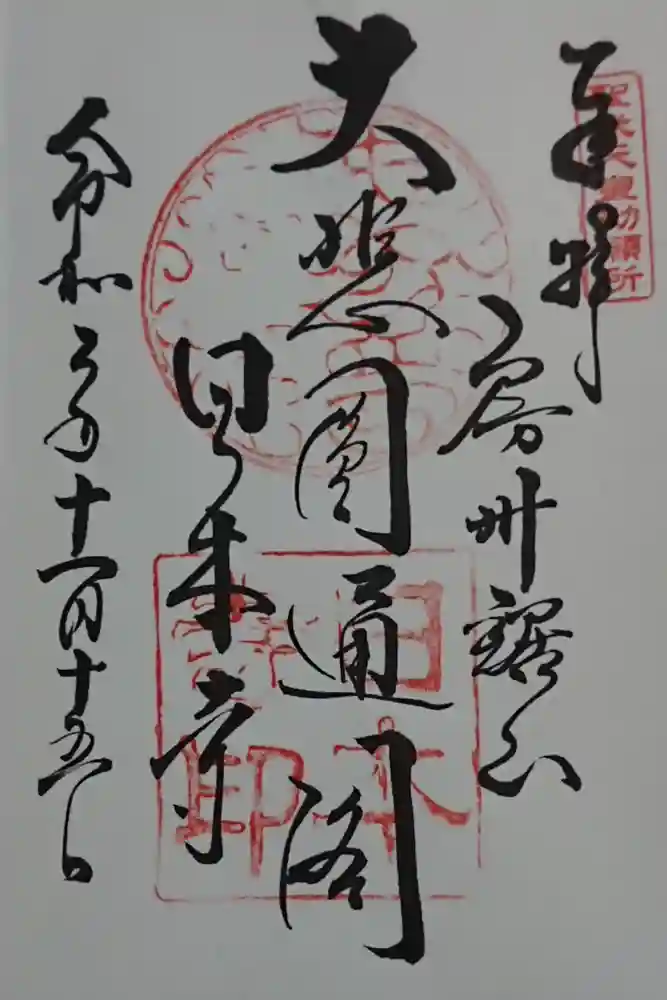 奉拝
聖武天皇勅願所
房州鋸山
大悲圓通閣
日本寺
日本寺印
令和三年十一月十五日